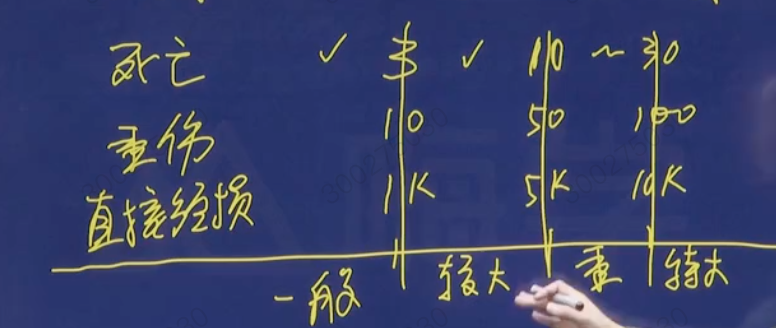 死亡 ✓ 3 ✓ 10 ~ 30
重伤 10 50 100
直接经损 1K 5K 10K
一般 较大 重 特大